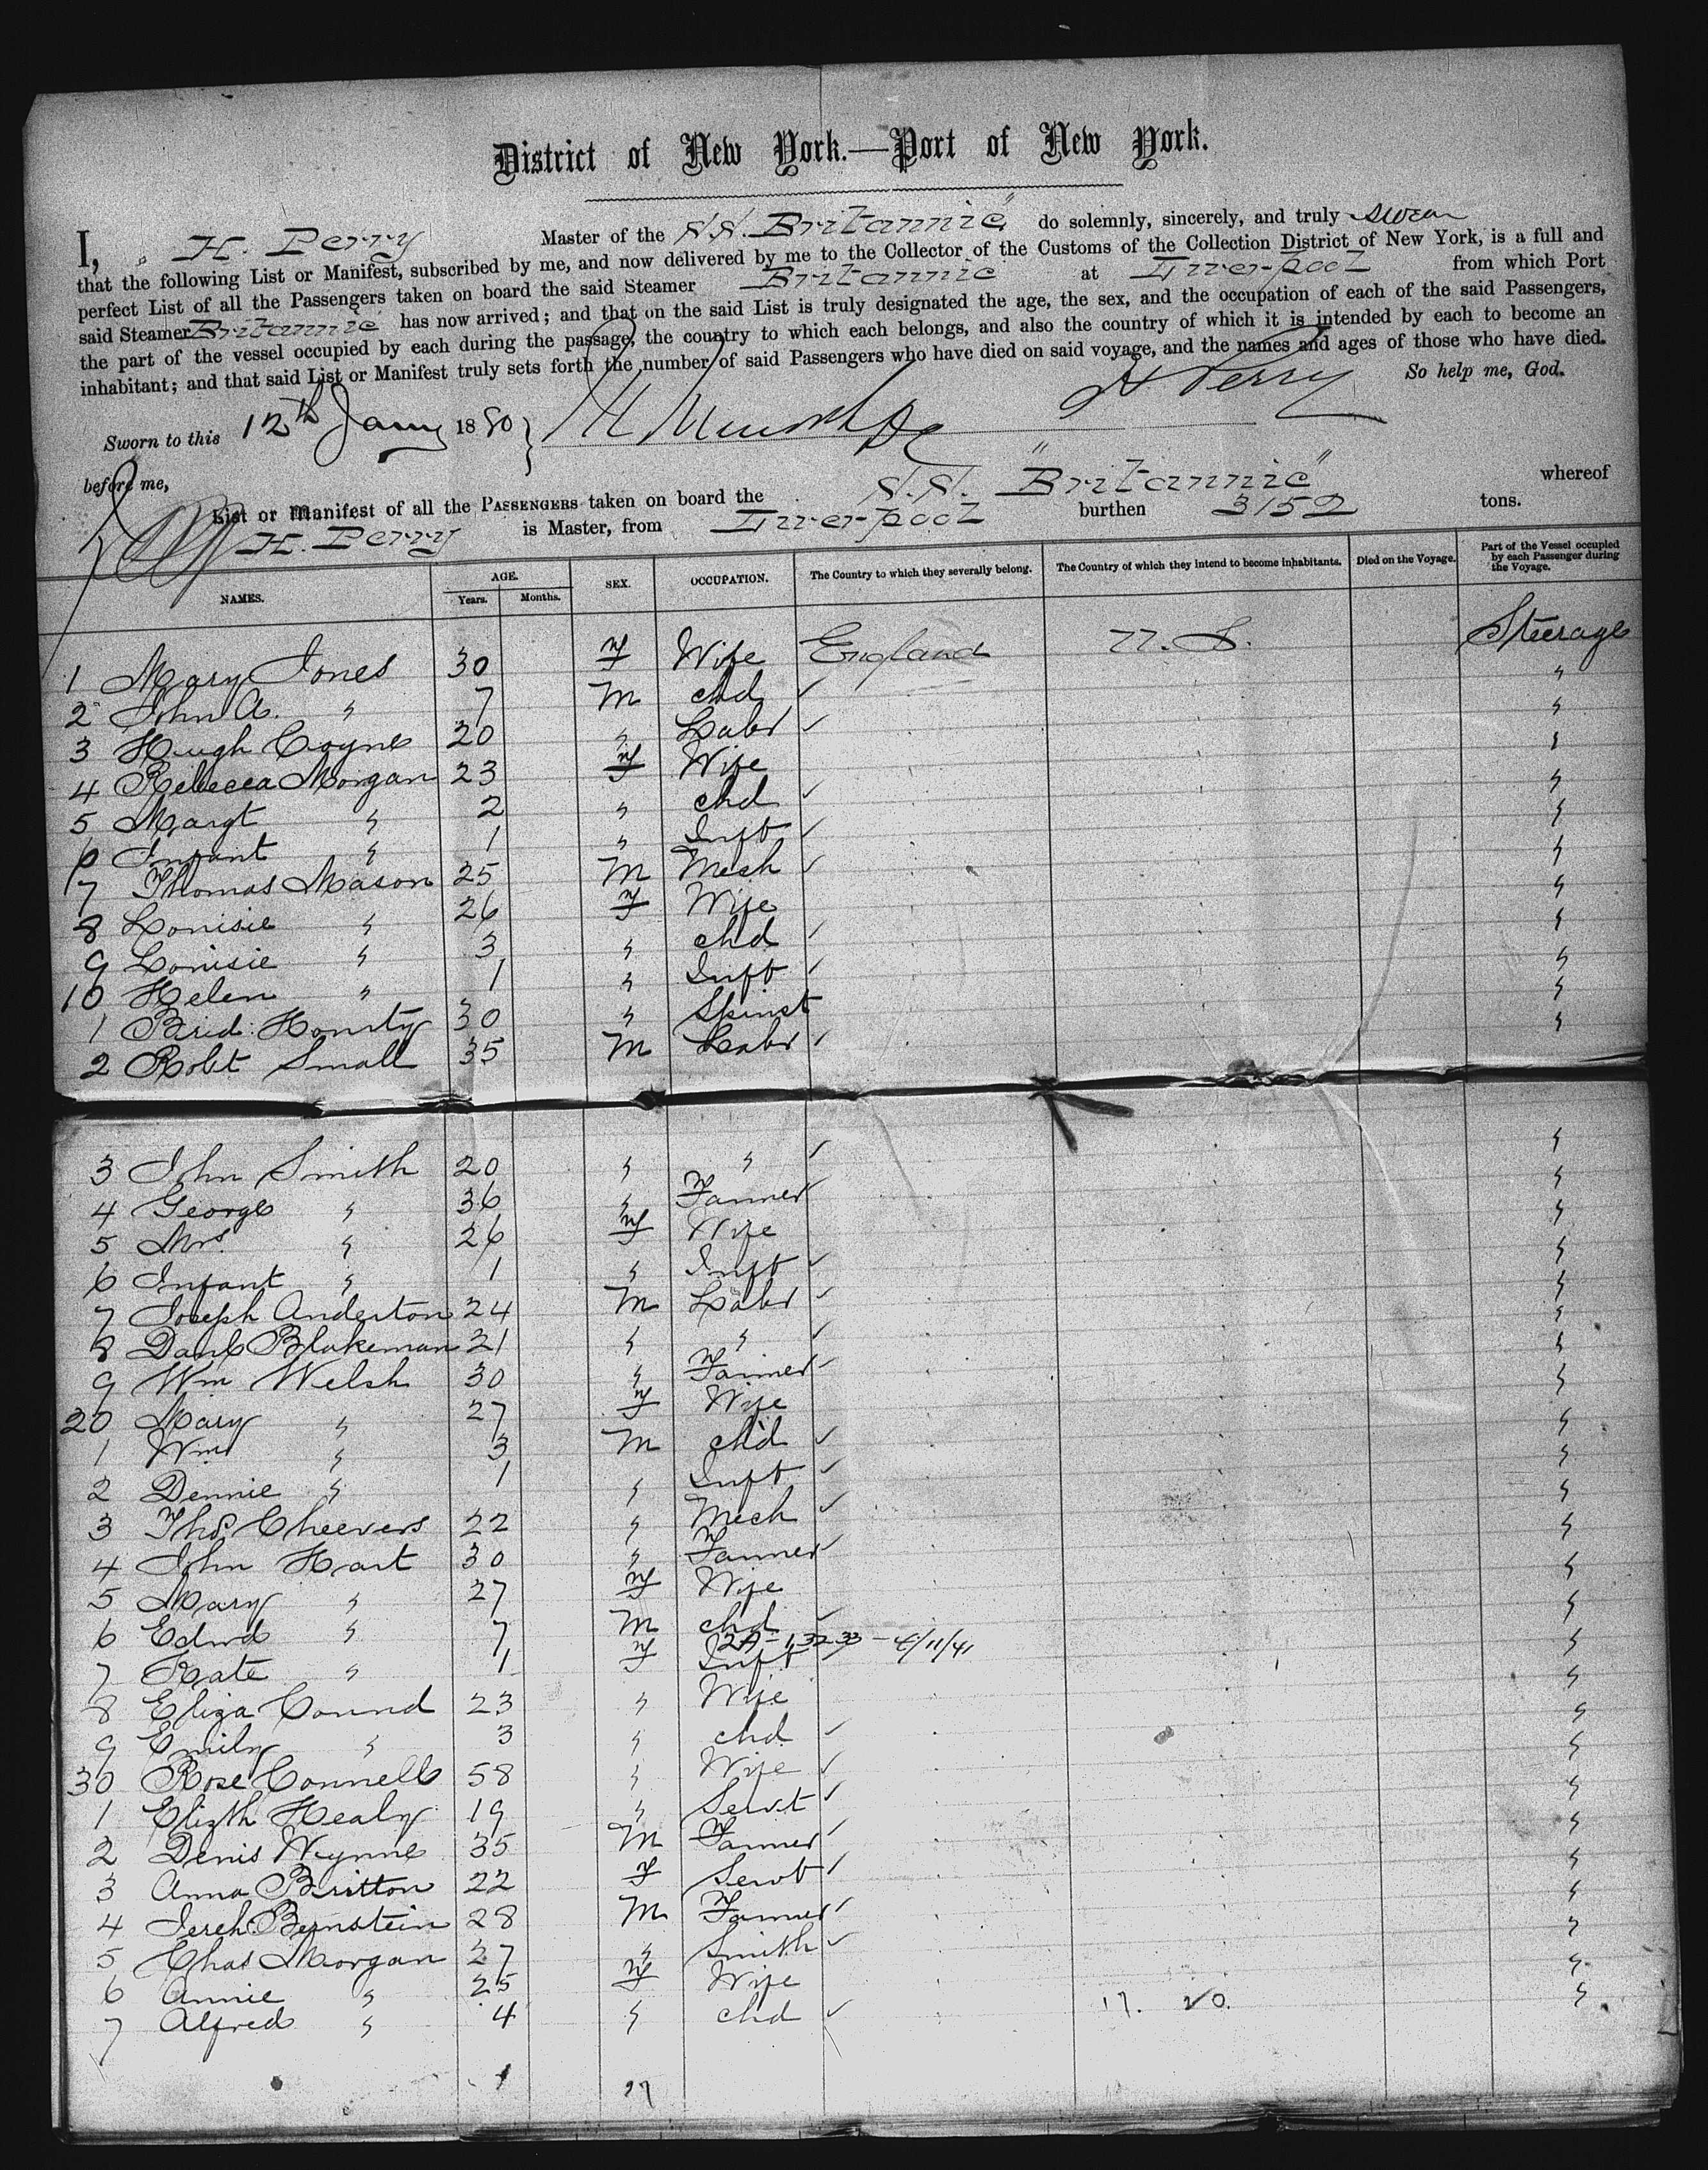 District of New York.—Port of New York.
I, H. Perry Master of the S.S. "Britannic" do solemnly, sincerely, and truly swear
that the following List or Manifest, subscribed by me, and now delivered by me to the Collector of the Customs of the Collection District of New York, is a full and
perfect List of all the Passengers taken on board the said Steamer Britannic at Liverpool from which Port
said Steamer Britannic has now arrived; and that on the said List is truly designated the age, the sex, and the occupation of each of the said Passengers,
the part of the vessel occupied by each during the passage, the country to which each belongs, and also the country of which it is intended by each to become an
inhabitant; and that said List or Manifest truly sets forth the number of said Passengers who have died on said voyage, and the names and ages of those who have died.
So help me, God.
Sworn to this 12th Jany 1880 } H Perry
before me,
List or Manifest of all the PASSENGERS taken on board the S.S. "Britannic" whereof
H. Perry is Master, from Liverpool burthen 3152 tons.
NAMES. AGE. Years. Months. SEX. OCCUPATION. The Country to which they severally belong. The Country of which they intend to become inhabitants. Died on the Voyage. Part of the Vessel occupied by each Passenger during the Voyage.
1 Mary Jones 30 F Wife England U.S. Steerage
2 John A. " 7 M chd "
3 Hugh Coyne 20 " Labr "
4 Rebecca Morgan 23 F Wife "
5 Margt " 2 " chd "
6 Infant " 1 " Inft "
7 Thomas Mason 25 M Mech "
8 Louisie " 26 F Wife "
9 Louisie " 3 " chd "
10 Helen " 1 " Inft "
1 Brid: 30 " Spinst "
2 Robt Small 35 M Labr "
3 John Smith 20 " " "
4 George " 36 " Farmer "
5 Mrs. " 26 F Wife "
6 Infant " 1 " Inft "
7 Joseph Anderton 24 M Labr "
8 Danl Blakeman 21 " " "
9 Wm Welsh 30 " Farmer "
20 Mary " 27 F Wife "
1 Wm " 3 M chd "
2 Dennie " 1 " Inft "
3 Thos. Cheevers 22 " Mech "
4 John Hart 30 " Farmer "
5 Mary " 27 F Wife "
6 Edwd " 7 M chd "
7 Kate " 1 F Inft "
8 Eliza 23 " Wife "
9 Emily " 3 " chd "
30 Rose Connell 58 " Wife "
1 Elizth Healy 19 " Servt "
2 Denis Wynne 35 M Farmer "
3 Anna Britton 22 F Servt "
4 Jereh: Bernstein 28 M Farmer "
5 Chas Morgan 27 " Smith "
6 Annie " 25 F Wife "
7 Alfred " 4 " chd "